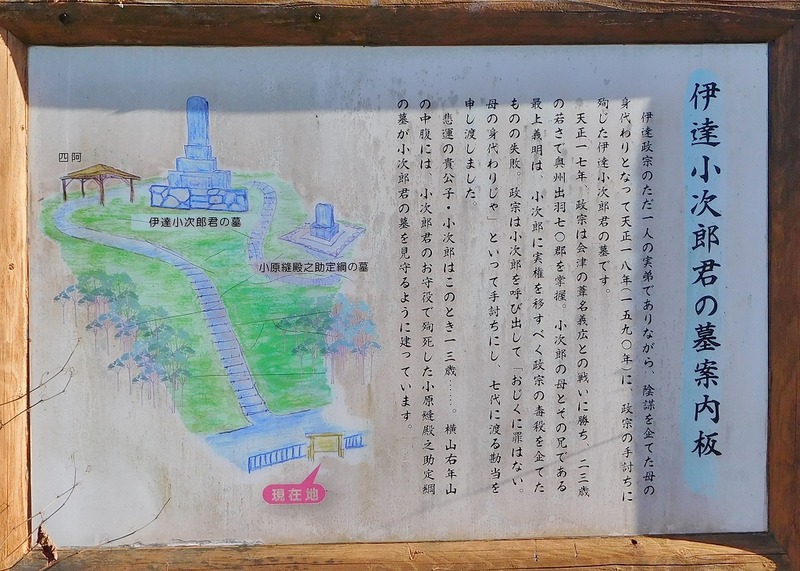 伊達小次郎君の墓案内板
伊達政宗のただ一人の実弟でありながら、陰謀を企てた母の
身代わりとなって天正一八年(一五九〇年)に、政宗の手討ちに
殉じた伊達小次郎君の墓です。
天正一七年、政宗は会津の葦名義広との戦いに勝ち、二三歳
の若さで奥州出羽七〇郡を掌握。小次郎の母とその兄である
最上義明は、小次郎に実権を移すべく政宗の毒殺を企てた
ものの失敗。政宗は小次郎を呼び出して「おじくに罪はない。
母の身代わりじゃ」といって手討ちにし、七代に渡る勘当を
申し渡しました。
悲運の貴公子・小次郎はこのとき一三歳……。横山右年山
の中腹には、小次郎君のお守役で殉死した小原縫殿之助定綱
の墓が小次郎君の墓を見守るように建っています。
四阿
伊達小次郎君の墓
小原縫殿之助定綱の墓
現在地